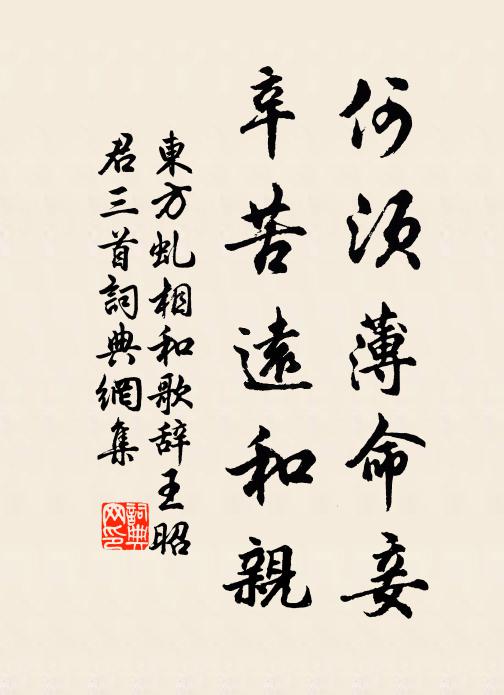 何須薄命妾
辛苦遠和親
東方虬相和歌辞王昭
君三首詞典網集
詞典网印